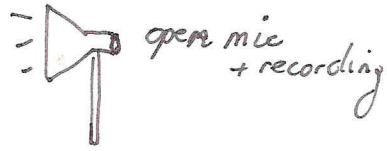 open mic
+ recording